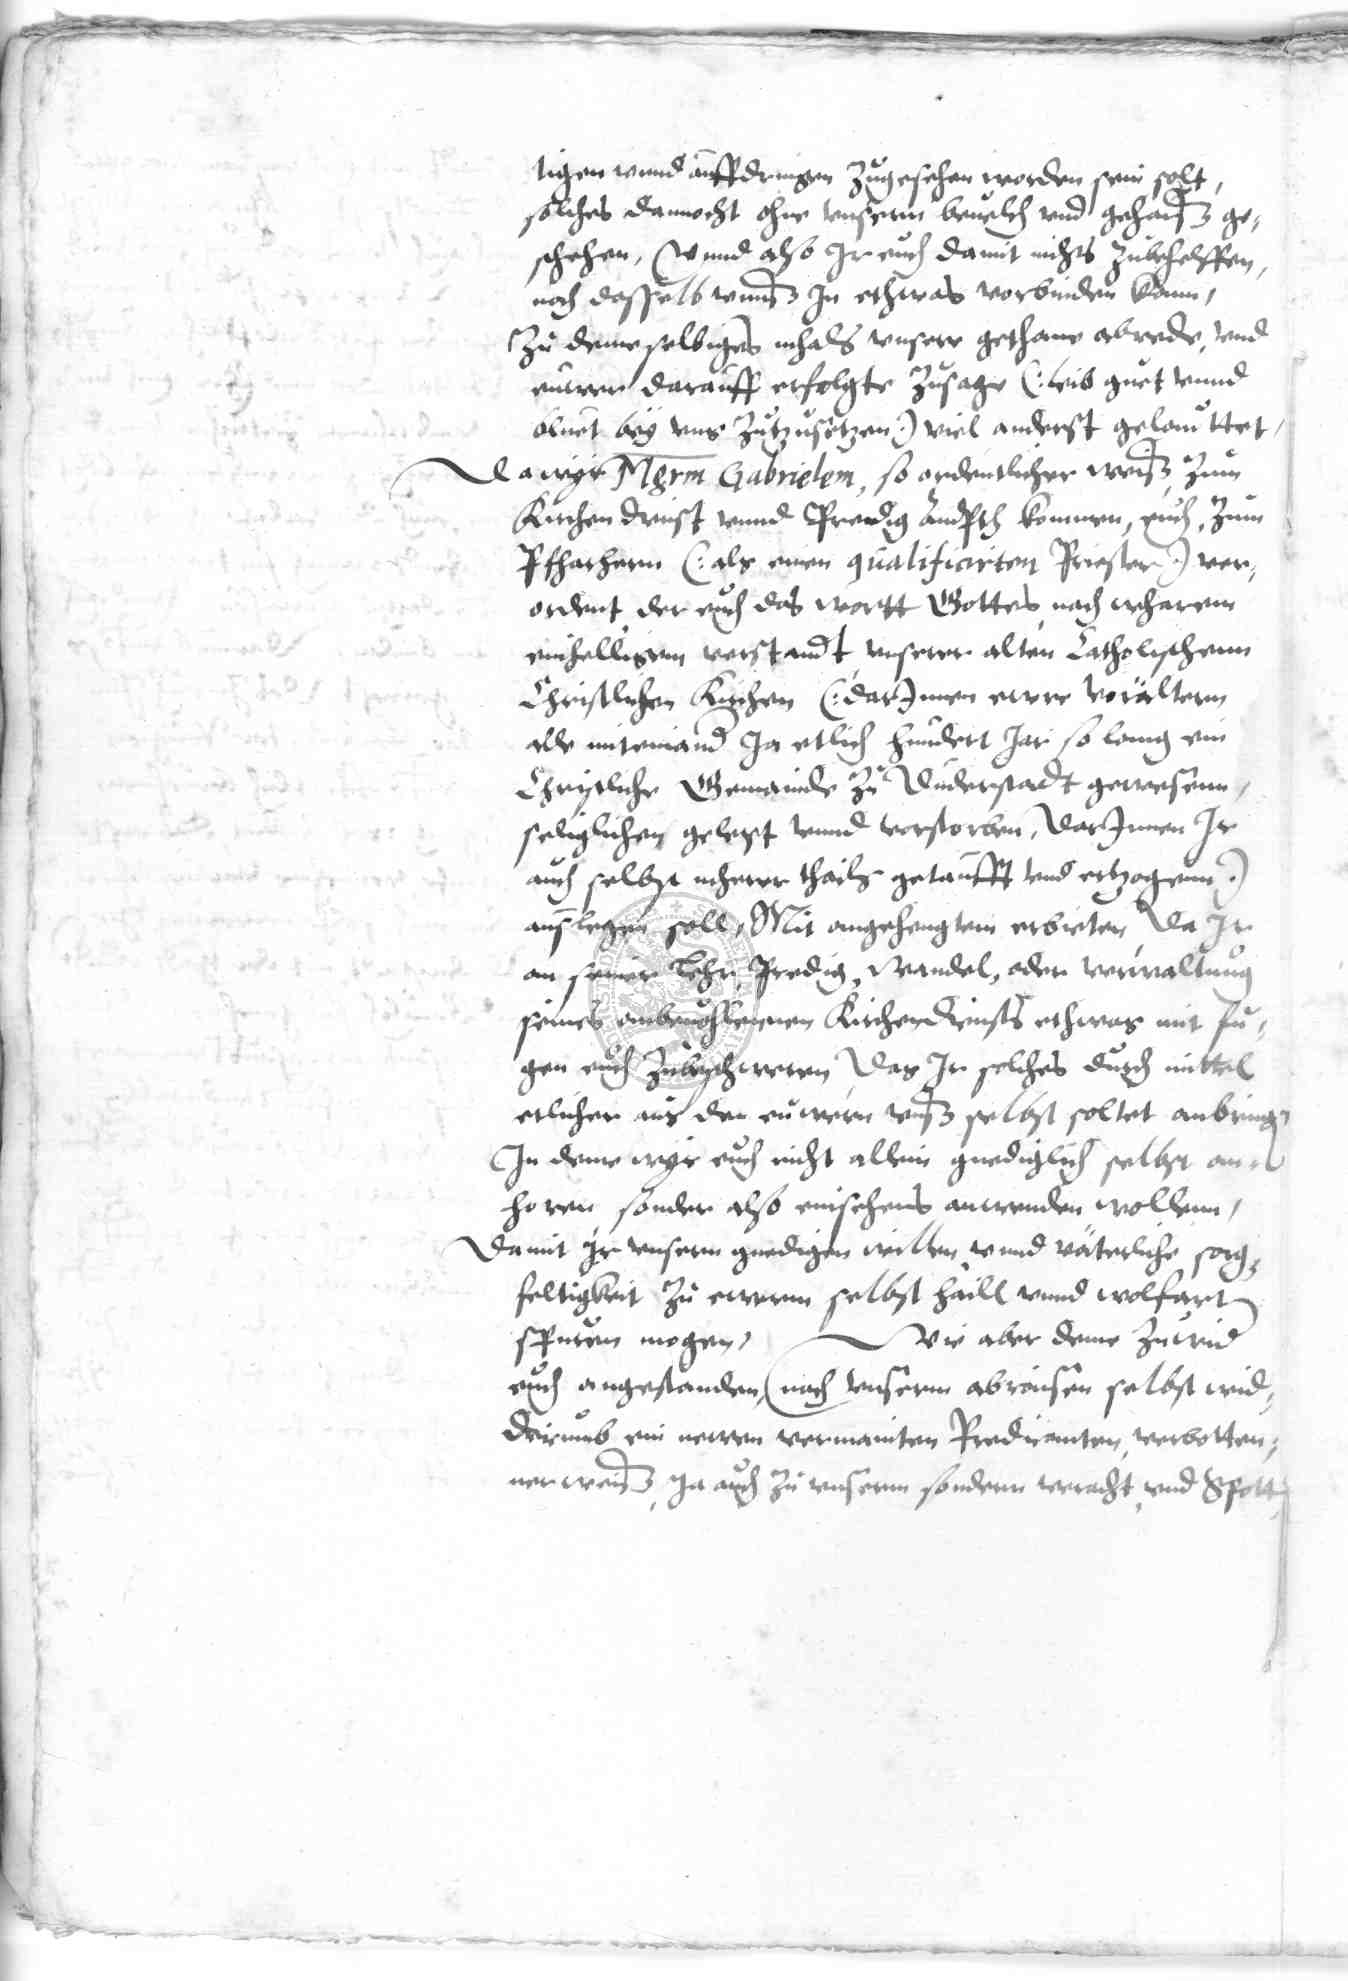 tigen vnnd auffdringen zugesehen worden sein solt,
solches dannocht ohne vnsern beuelch vnd gehaiß ge-
schehen, Vnnd also Ir euch damit nichts zubehelffen,
noch dasselb vnnß In ethwas vorbinden kann,
Zu deme selbiges inhalts vnsere gethane abrede, vnd
eurer darauff erfolgte Zusage (: leib guet vnnd
bluet bey vns zutzusetzen :) viel anderst gelauttet,
Da wyr Mgrm Gabrielem, so ordentlicher weiß, zum
Kirchen dienst vnnd Predig Ampth kommen, euch, zum
Pfharhern (: als einen qualificirten Priester :) ver-
ordent, der euch das wortt Gottes, nach wharem
einhelligem verstandt vnserer alten Catholischenn
Christlichen Kirchen (: darInnen ewre voraltern
alle miteinand Ja etlich hundert Jar so lang ein
Christliche Gemainde zu Duderstadt gewesenn,
seliglichen gelept vnnd verstorben, DarInnen Ir
auch selbst mherer thails getaufft vnd ertzogenn :)
auslegen soll, Mit angehengtem erbieten, Da Ir
an seiner Lehr, Predig, Wandel, oder verwaltung
seines anbeuohlennen Kirchendiensts ethwas mit fu-
gen euch zubeschweren, Das Ir solches durch mittel
etlicher aus den euwern vnß selbst soltet anbringen
In deme wyr euch nicht allein gnediglich selbst an-
horen, sonder also einsehens anwenden wollenn,
Damit Ir vnsern gnedigen willen vnnd väterliche sorg-
feltigkeit zu ewerm selbst haill vnnd wolfart
spuren mogen, Wie aber deme zuwid
euch angestanden, nach vnserm abraisen selbst wid-
derumb ein newen vermainten Predicanten, verbotten-
ner weiß, Ja auch zu vnserm sondern veracht vnd Spott